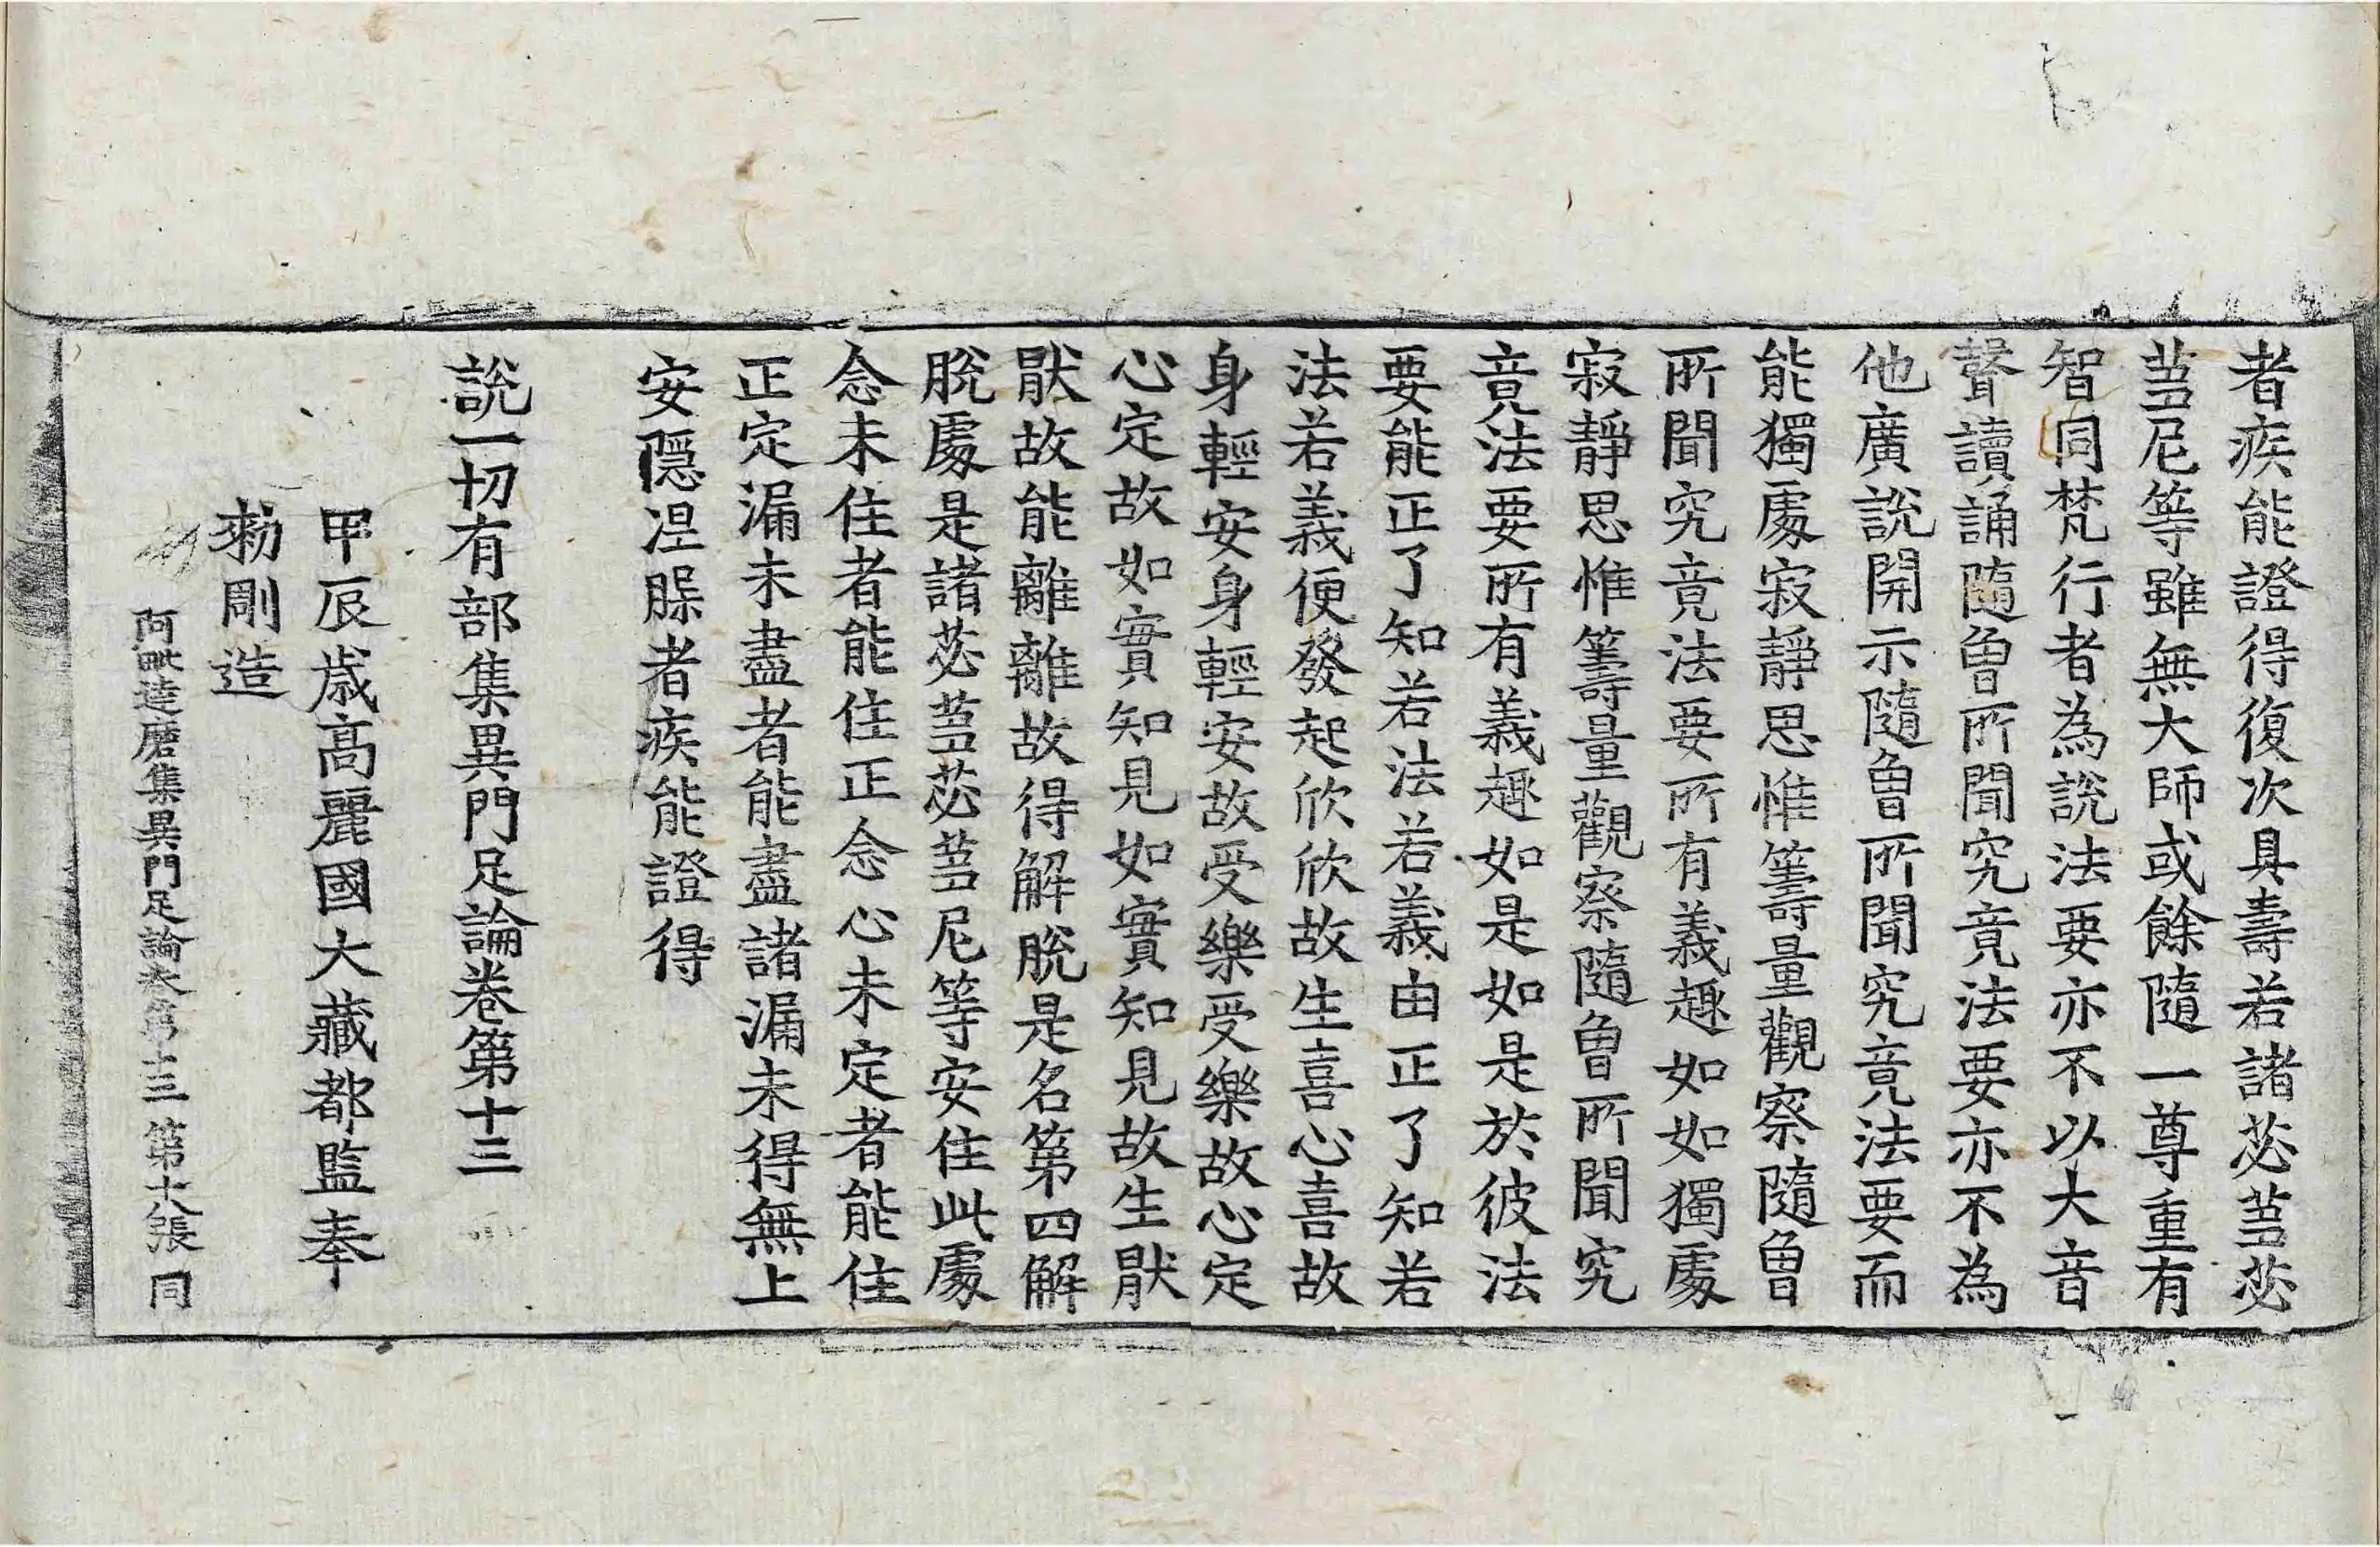 者疾能證得復次具壽若諸苾芻苾
芻尼等雖無大師或餘隨一尊重有
智同梵行者為說法要亦不以大音
聲讀誦隨曾所聞究竟法要亦不為
他廣說開示隨曾所聞究竟法要而
能獨處寂靜思惟籌量觀察隨曾
所聞究竟法要所有義趣如如獨處
寂靜思惟籌量觀察隨曾所聞究
竟法要所有義趣如是如是於彼法
要能正了知若法若義由正了知若
法若義便發起欣欣故生喜心喜故
身輕安身輕安故受樂受樂故心定
心定故如實知見如實知見故生猒
猒故能離離故得解脫是名第四解
脫處是諸苾芻苾芻尼等安住此處
念未住者能住正念心未定者能住
正定漏未盡者能盡諸漏未得無上
安隱涅槃者疾能證得
說一切有部集異門足論卷第十三
甲辰歲高麗國大藏都監奉
勑彫造
阿毗達磨集異門足論卷第十三 第十八張 同